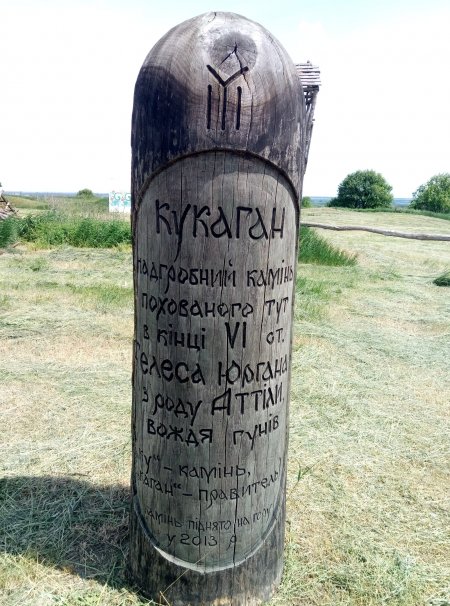 КУКАГАН
надгробний камінь
похованого тут
в кінці VI ст.
Телеса Юргана
з роду Аттіли
вождя гунів
"ку" – камінь,
"каган" – правитель
камінь піднято на гору
у 2013 р